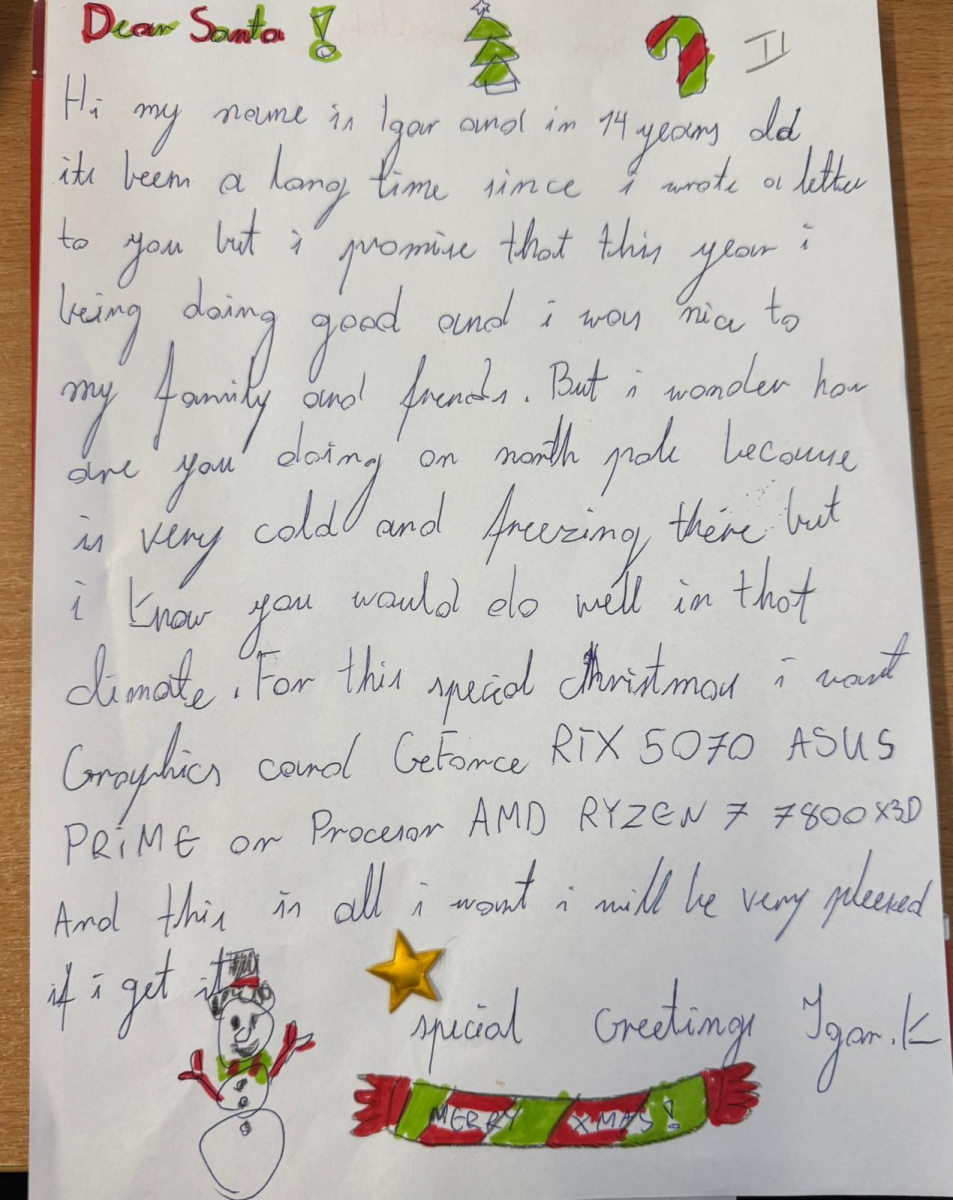 Dear Santa ! II
Hi my name is Igor and im 14 years old
its been a long time since i wrote a letter
to you but i promise that this year i
being doing good and i was nice to
my family and frends. But i wonder how
are you doing on north pole because
is very cold and freezing there but
i know you would do well in that
climate. For this special Christmas i want
Graphics card GeForce RTX 5070 ASUS
PRiME or Procesor AMD RYZEN 7 7800X3D
And this is all i want i will be very pleesed
if i get it
special Greetings Igor.K
MERRY XMAS!